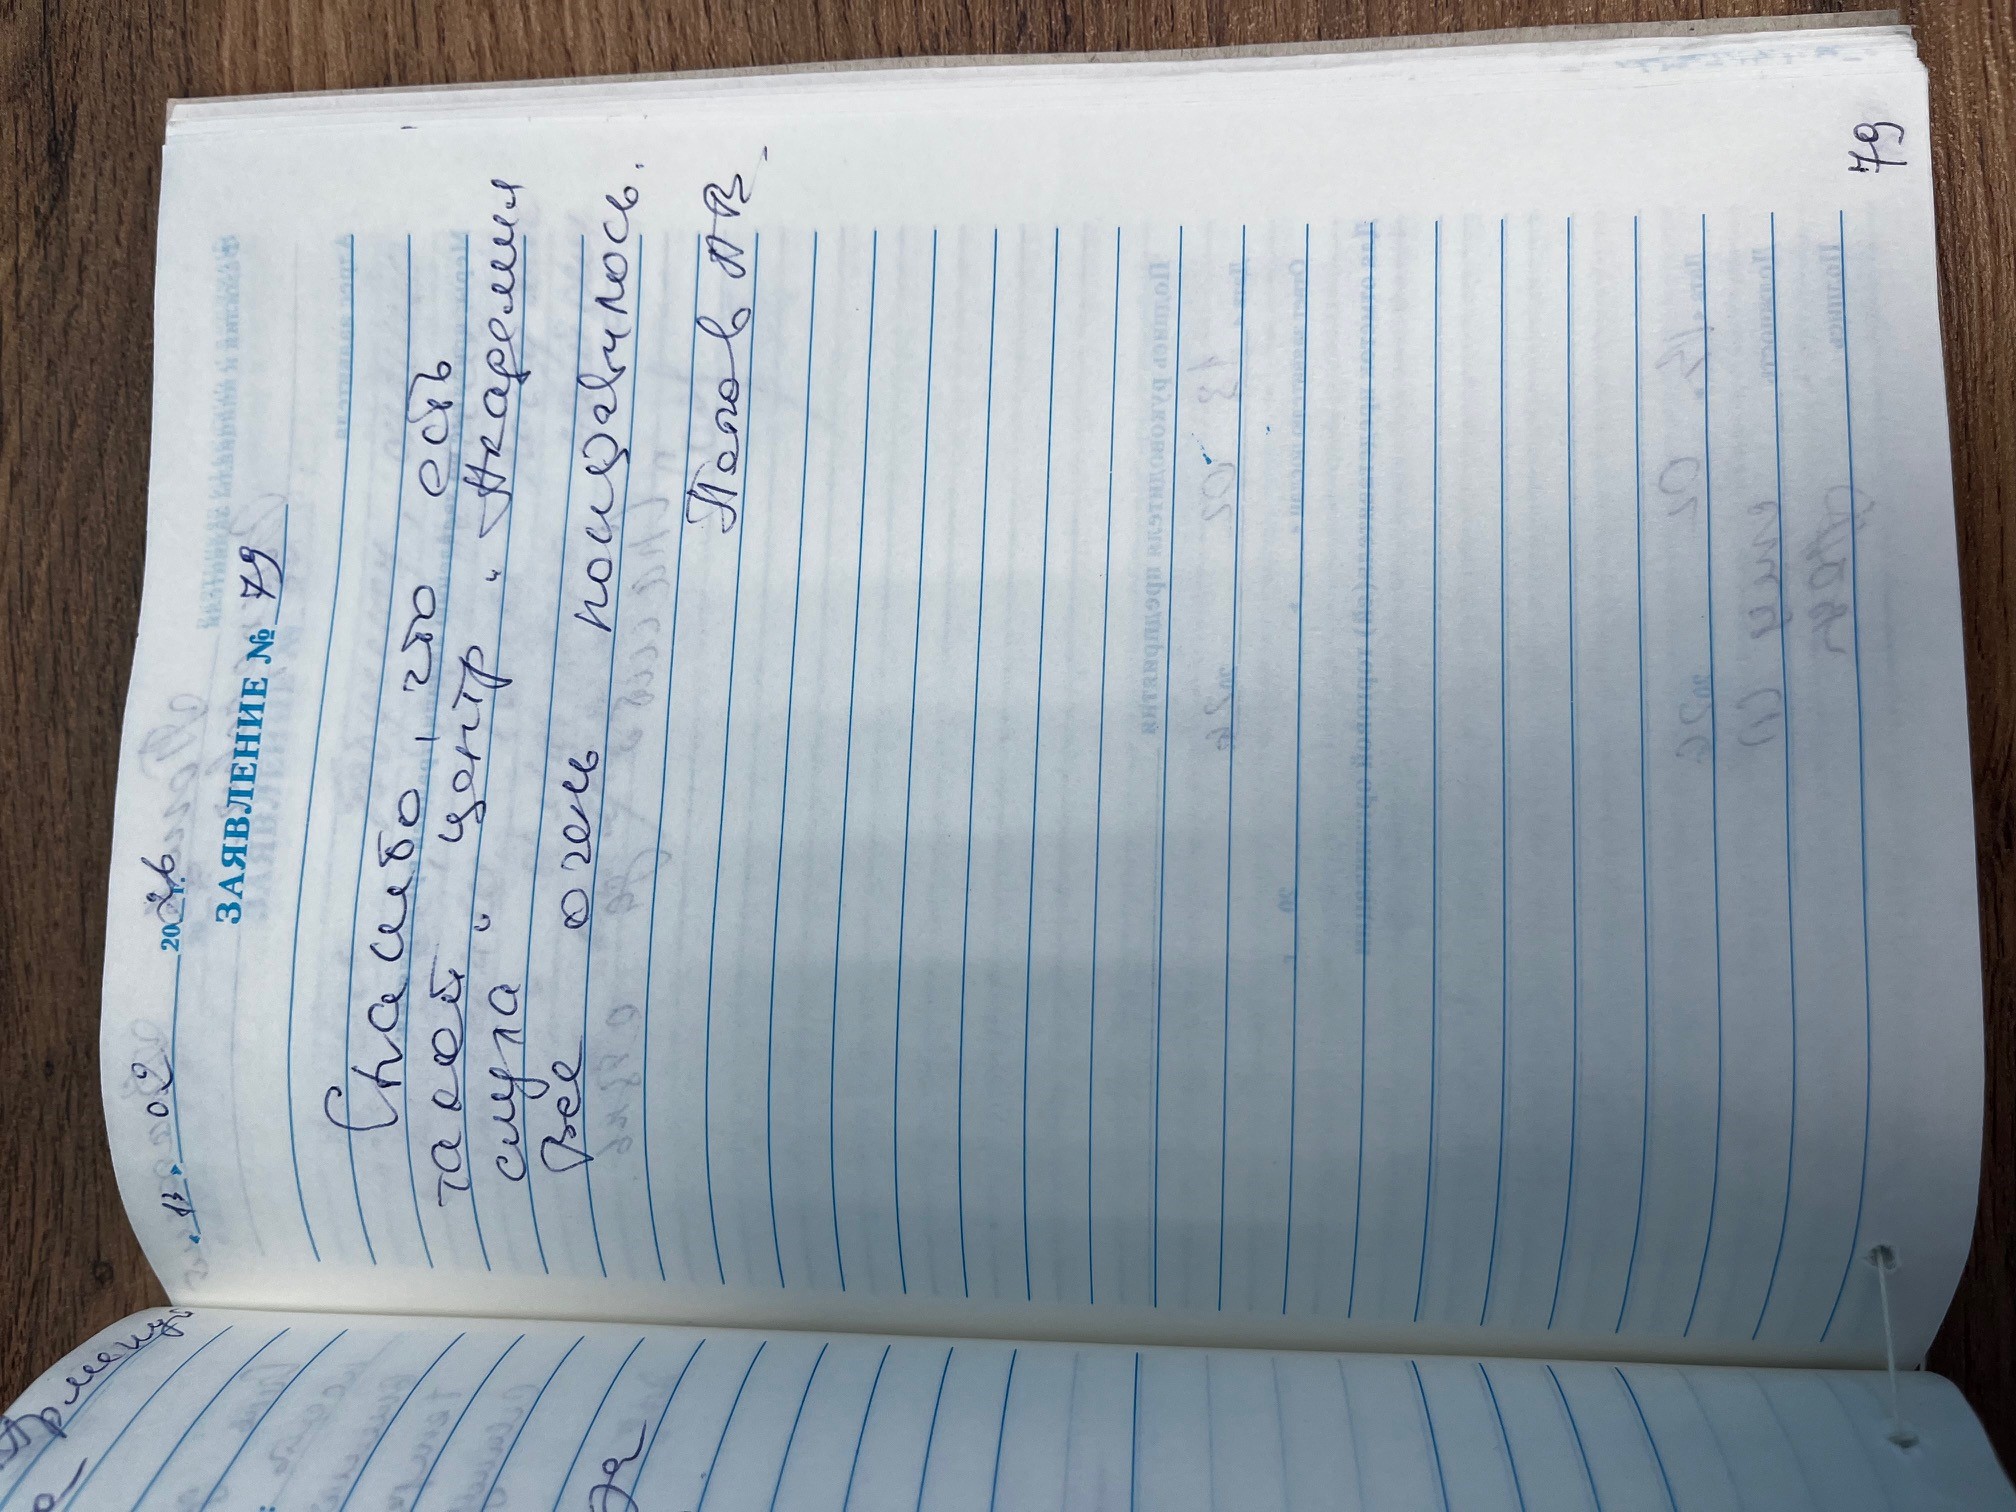 « 13 » 02 2026 г.
ЗАЯВЛЕНИЕ № 79
Спасибо, что есть
такой центр "Академия
слуха"
Все очень понравилось.
Попов АВ
79